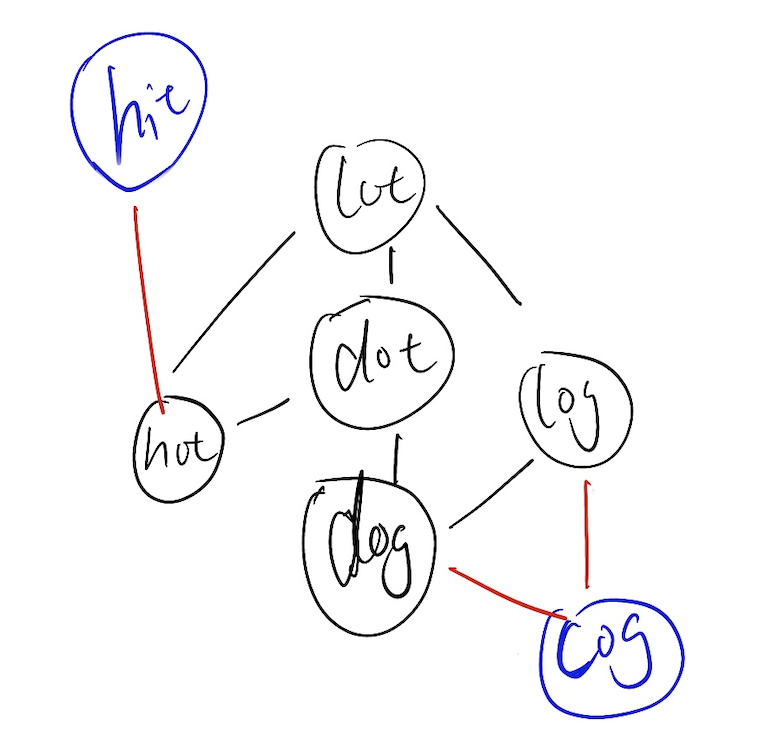 hit
lot
dot
log
hot
dog
cog